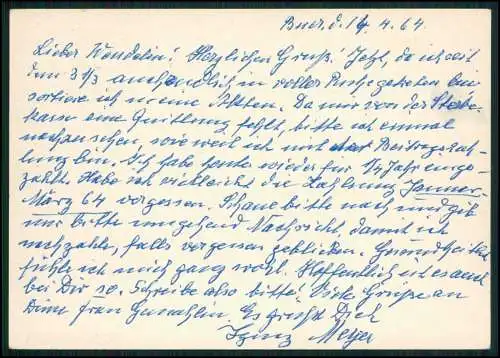 Buer, d. 14. 4. 64
Lieber Wendelin! Herzlichen Gruß! Jetzt, da ich seit
dem 31/3 auch endlich in voller Ruhe getreten bin
sortiere ich meine Akten. Da mir von der Sterbe-
kasse eine Quittung fehlt, bitte ich einmal
nachzusehen, wie weit ich mit der Beitragszah-
lung bin. Ich habe heute wieder für 1/4 Jahr einge-
zahlt. Habe ich vielleicht die Zahlung Januar-
März 64 vergessen. Schaue bitte nach und gib
mir bitte umgehend Nachricht, damit ich
nachzahle, falls vergessen geblieben. Gesundheitlich
fühle ich mich ganz wohl. Hoffentlich ist es auch
bei Dir so. Schreibe also bitte! Viele Grüße an
Deine Frau Gemahlin. Es grüßt Dich
Meyer